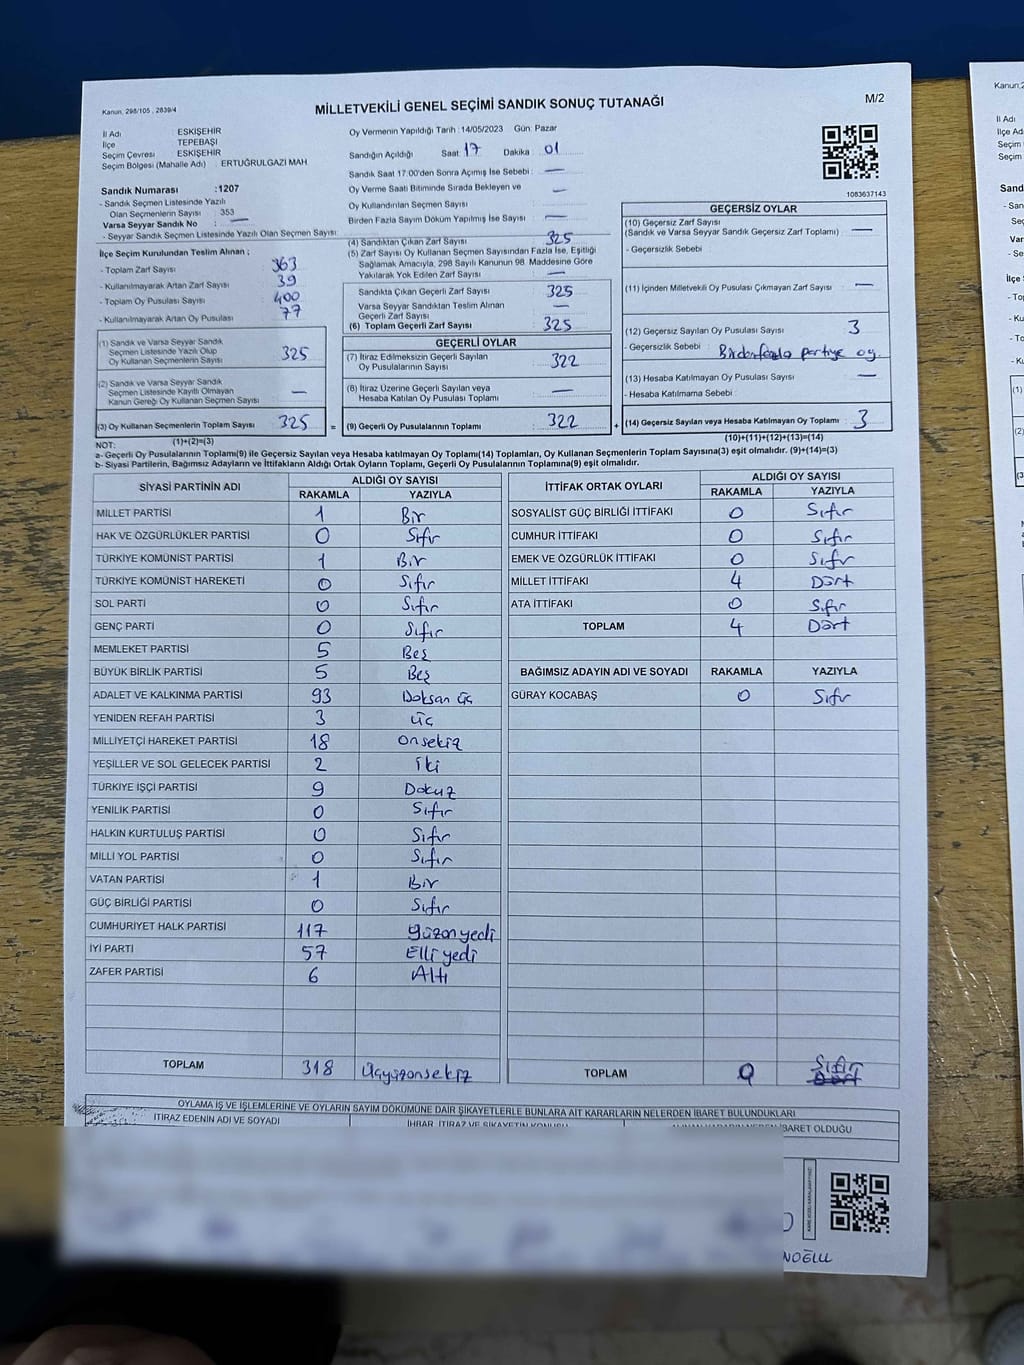 Kanun, 298/105 , 2839/4
MİLLETVEKİLİ GENEL SEÇİMİ SANDIK SONUÇ TUTANAĞI
M/2
İl Adı ESKİŞEHİR
İlçe TEPEBAŞI
Seçim Çevresi ESKİŞEHİR
Seçim Bölgesi (Mahalle Adı) : ERTUĞRULGAZİ MAH
Sandık Numarası :1207
- Sandık Seçmen Listesinde Yazılı
Olan Seçmenlerin Sayısı : 353
Varsa Seyyar Sandık No : —
- Seyyar Sandık Seçmen Listesinde Yazılı Olan Seçmen Sayısı
İlçe Seçim Kurulundan Teslim Alınan ;
- Toplam Zarf Sayısı : 363
- Kullanılmayarak Artan Zarf Sayısı : 39
- Toplam Oy Pusulası Sayısı : 400
- Kullanılmayarak Artan Oy Pusulası : 77
(1) Sandık ve Varsa Seyyar Sandık
Seçmen Listesinde Yazılı Olup
Oy Kullanan Seçmenlerin Sayısı 325
(2) Sandık ve Varsa Seyyar Sandık
Seçmen Listesinde Kayıtlı Olmayan
Kanun Gereği Oy Kullanan Seçmen Sayısı —
(3) Oy Kullanan Seçmenlerin Toplam Sayısı 325 =
Oy Vermenin Yapıldığı Tarih :14/05/2023 Gün: Pazar
Sandığın Açıldığı Saat : 17 Dakika : 01
Sandık Saat 17:00'den Sonra Açımış İse Sebebi : —
Oy Verme Saati Bitiminde Sırada Bekleyen ve
Oy Kullandırılan Seçmen Sayısı : —
Birden Fazla Sayım Döküm Yapılmış İse Sayısı : —
(4) Sandıktan Çıkan Zarf Sayısı : 325
(5) Zarf Sayısı Oy Kullanan Seçmen Sayısından Fazla İse, Eşitliği
Sağlamak Amacıyla, 298 Sayılı Kanunun 98. Maddesine Göre
Yakılarak Yok Edilen Zarf Sayısı : —
Sandıkta Çıkan Geçerli Zarf Sayısı : 325
Varsa Seyyar Sandıktan Teslim Alınan
Geçerli Zarf Sayısı : —
(6) Toplam Geçerli Zarf Sayısı : 325
GEÇERLİ OYLAR
(7) İtiraz Edilmeksizin Geçerli Sayılan
Oy Pusulalarının Sayısı : 322
(8) İtiraz Üzerine Geçerli Sayılan veya
Hesaba Katılan Oy Pusulası Toplamı : —
(9) Geçerli Oy Pusulalarının Toplamı : 322 +
1083637143
GEÇERSİZ OYLAR
(10) Geçersiz Zarf Sayısı
(Sandık ve Varsa Seyyar Sandık Geçersiz Zarf Toplamı) : —
- Geçersizlik Sebebi :
(11) İçinden Milletvekili Oy Pusulası Çıkmayan Zarf Sayısı : —
(12) Geçersiz Sayılan Oy Pusulası Sayısı : 3
- Geçersizlik Sebebi : Birdenfazla partiye oy.
(13) Hesaba Katılmayan Oy Pusulası Sayısı : —
- Hesaba Katılmama Sebebi :
(14) Geçersiz Sayılan veya Hesaba Katılmayan Oy Toplamı : 3
NOT: (1)+(2)=(3) (10)+(11)+(12)+(13)=(14)
a- Geçerli Oy Pusulalarının Toplamı(9) ile Geçersiz Sayılan veya Hesaba katılmayan Oy Toplamı(14) Toplamları, Oy Kullanan Seçmenlerin Toplam Sayısına(3) eşit olmalıdır. (9)+(14)=(3)
b- Siyasi Partilerin, Bağımsız Adayların ve İttifakların Aldığı Ortak Oyların Toplamı, Geçerli Oy Pusulalarının Toplamına(9) eşit olmalıdır.
SİYASİ PARTİNİN ADI ALDIĞI OY SAYISI
RAKAMLA YAZIYLA
MİLLET PARTİSİ 1 Bir
HAK VE ÖZGÜRLÜKLER PARTİSİ 0 Sıfır
TÜRKİYE KOMÜNİST PARTİSİ 1 Bir
TÜRKİYE KOMÜNİST HAREKETİ 0 Sıfır
SOL PARTİ 0 Sıfır
GENÇ PARTİ 0 Sıfır
MEMLEKET PARTİSİ 5 Beş
BÜYÜK BİRLİK PARTİSİ 5 Beş
ADALET VE KALKINMA PARTİSİ 93 Doksan üç
YENİDEN REFAH PARTİSİ 3 üç
MİLLİYETÇİ HAREKET PARTİSİ 18 onsekiz
YEŞİLLER VE SOL GELECEK PARTİSİ 2 İki
TÜRKİYE İŞÇİ PARTİSİ 9 Dokuz
YENİLİK PARTİSİ 0 Sıfır
HALKIN KURTULUŞ PARTİSİ 0 Sıfır
MİLLİ YOL PARTİSİ 0 Sıfır
VATAN PARTİSİ 1 Bir
GÜÇ BİRLİĞİ PARTİSİ 0 Sıfır
CUMHURİYET HALK PARTİSİ 117 yüzonyedi
İYİ PARTİ 57 Elli yedi
ZAFER PARTİSİ 6 Altı
TOPLAM 318 Üçyüzonsekiz
İTTİFAK ORTAK OYLARI ALDIĞI OY SAYISI
RAKAMLA YAZIYLA
SOSYALİST GÜÇ BİRLİĞİ İTTİFAKI 0 Sıfır
CUMHUR İTTİFAKI 0 Sıfır
EMEK VE ÖZGÜRLÜK İTTİFAKI 0 Sıfır
MİLLET İTTİFAKI 4 Dört
ATA İTTİFAKI 0 Sıfır
TOPLAM 4 Dört
BAĞIMSIZ ADAYIN ADI VE SOYADI RAKAMLA YAZIYLA
GÜRAY KOCABAŞ 0 Sıfır
TOPLAM 0 Sıfır
OYLAMA İŞ VE İŞLEMLERİNE VE OYLARIN SAYIM DÖKÜMÜNE DAİR ŞİKAYETLERLE BUNLARA AİT KARARLARIN NELERDEN İBARET BULUNDUKLARI
İTİRAZ EDENİN ADI VE SOYADI
İHBAR, İTİRAZ VE ŞİKAYETİN KONUSU
ALINAN KARARIN NEDEN İBARET OLDUĞU
NOĞLU
Kanun,
İl Adı
İlçe Ad
Seçim